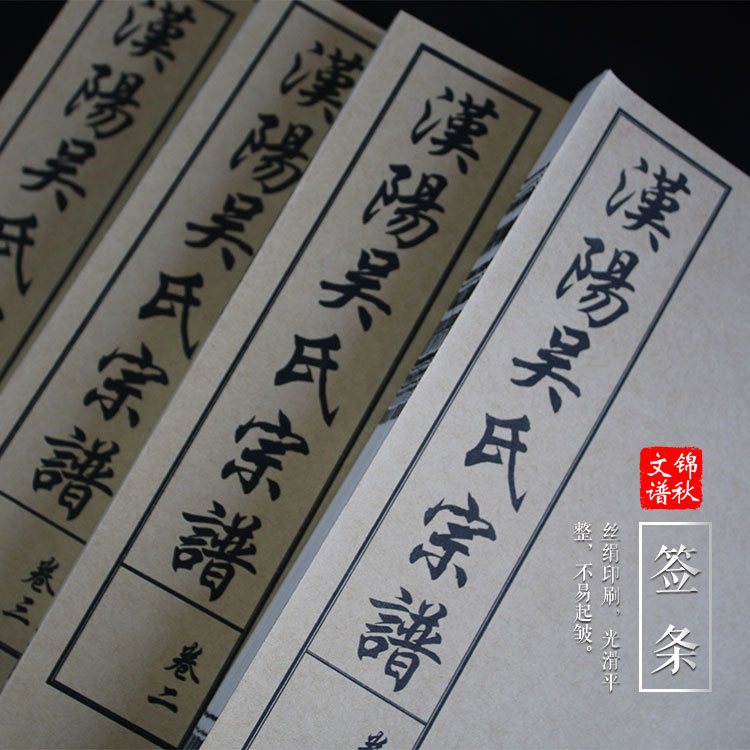 漢陽吴氏宗譜
卷
漢陽吴氏宗譜
卷二
漢陽吴氏宗譜
卷三
漢陽吴氏
锦秋
文谱
签条
丝绢印刷，光滑平
整，不易起皱。